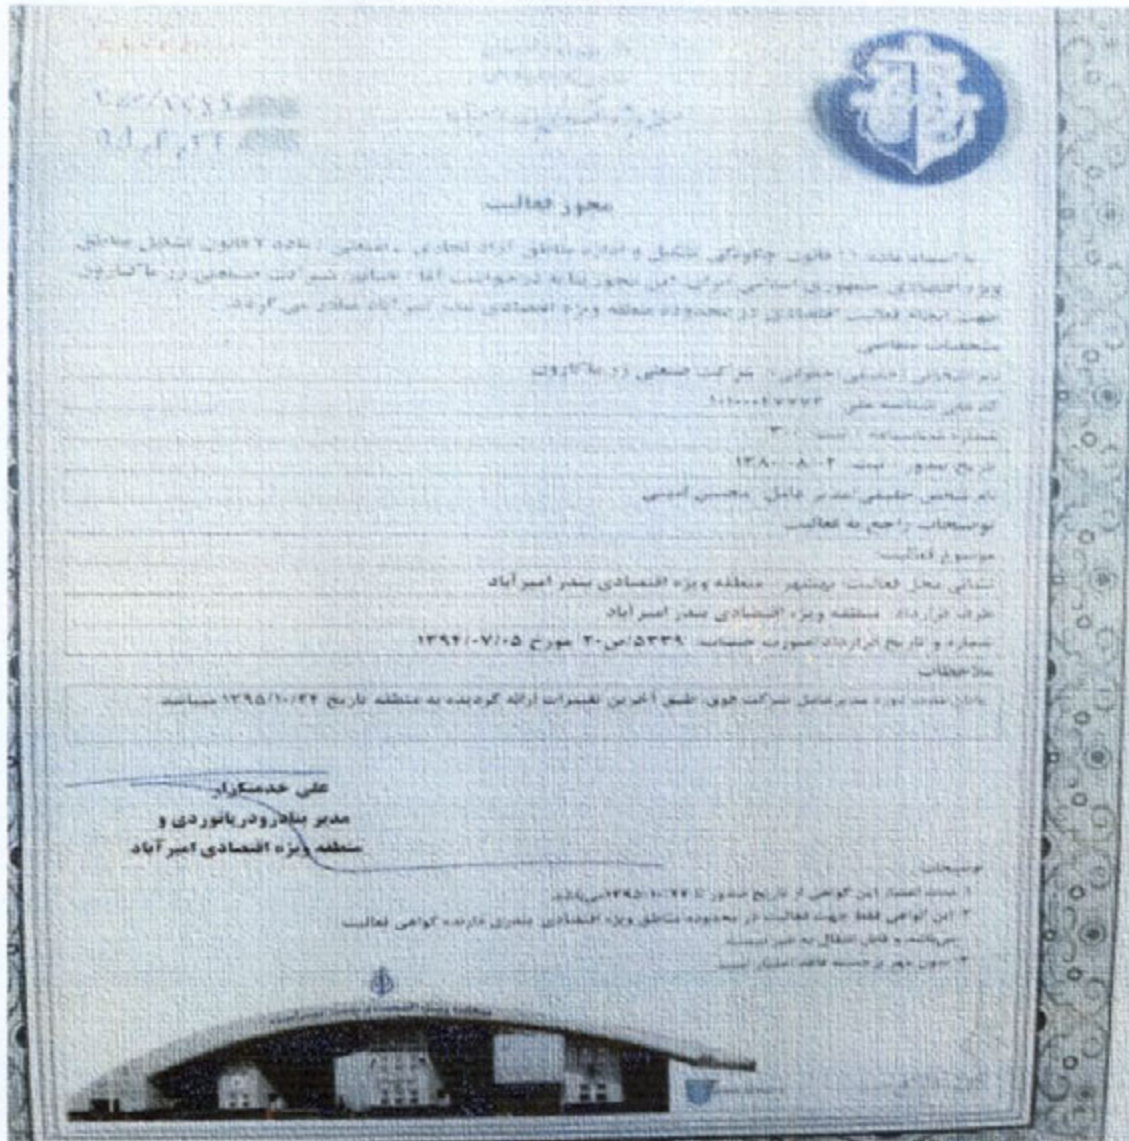 مجوز فعالیت
به استناد ماده ۱۱ قانون چگونگی تشکیل و اداره مناطق آزاد تجاری ـ صنعتی / ماده ۷ قانون تشکیل مناطق
ویژه اقتصادی جمهوری اسلامی ایران این مجوز بنا به درخواست آقا / خانم / شرکت صنعتی زر ماکارون
جهت انجام فعالیت اقتصادی در محدوده منطقه ویژه اقتصادی بندر امیر آباد صادر می گردد.
مشخصات متقاضی
نام شخص (حقیقی/حقوقی): شرکت صنعتی زر ماکارون
کد ملی/شناسه ملی:
شماره شناسنامه / ثبت: ۳۰۰
تاریخ صدور / ثبت: ۱۳۸۰-۰۸-۰۲
نام شخص حقیقی/مدیر عامل: محسن امینی
توضیحات راجع به فعالیت
موضوع فعالیت:
نشانی محل فعالیت: بهشهر - منطقه ویژه اقتصادی بندر امیر آباد
طرف قرارداد: منطقه ویژه اقتصادی بندر امیر آباد
شماره و تاریخ قرارداد/صورت حساب: ۵۳۳۹/ص۲۰ مورخ ۱۳۹۴/۰۷/۰۵
ملاحظات
پایان مدت دوره مدیرعامل شرکت فوق، طبق آخرین تغییرات ارائه گردیده به منطقه تاریخ ۱۳۹۵/۱۰/۲۴ میباشد.
علی خدمتگزار
مدیر بنادر و دریانوردی و
منطقه ویژه اقتصادی امیر آباد
توضیحات:
۱. مدت اعتبار این گواهی از تاریخ صدور تا ۱۳۹۵/۱۰/۲۴ می‌باشد.
۲. این گواهی فقط جهت فعالیت در محدوده مناطق ویژه اقتصادی بندری دارنده گواهی فعالیت
می‌باشد و قابل انتقال به غیر نیست.
۳. بدون مهر برجسته فاقد اعتبار است.